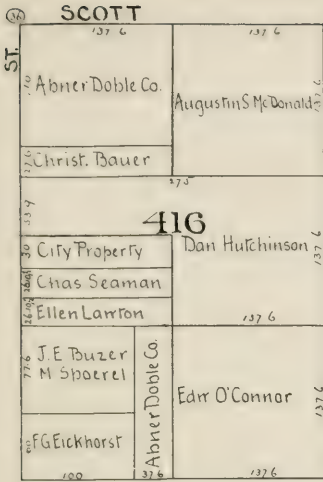 36
SCOTT
ST.
137 6
137 6
110
Abner Doble Co.
Augustin S McDonald
137 6
27 6
Christ. Bauer
275
53 9
416
30
City Property
Dan Hutchinson
137 6
Chas Seaman
Ellen Lawton
137 6
77 6
J.E Buzer
M Spoerel
Abner Doble Co.
Edw O'Connor
137 6
60
F G Eickhorst
100
37 6
137 6